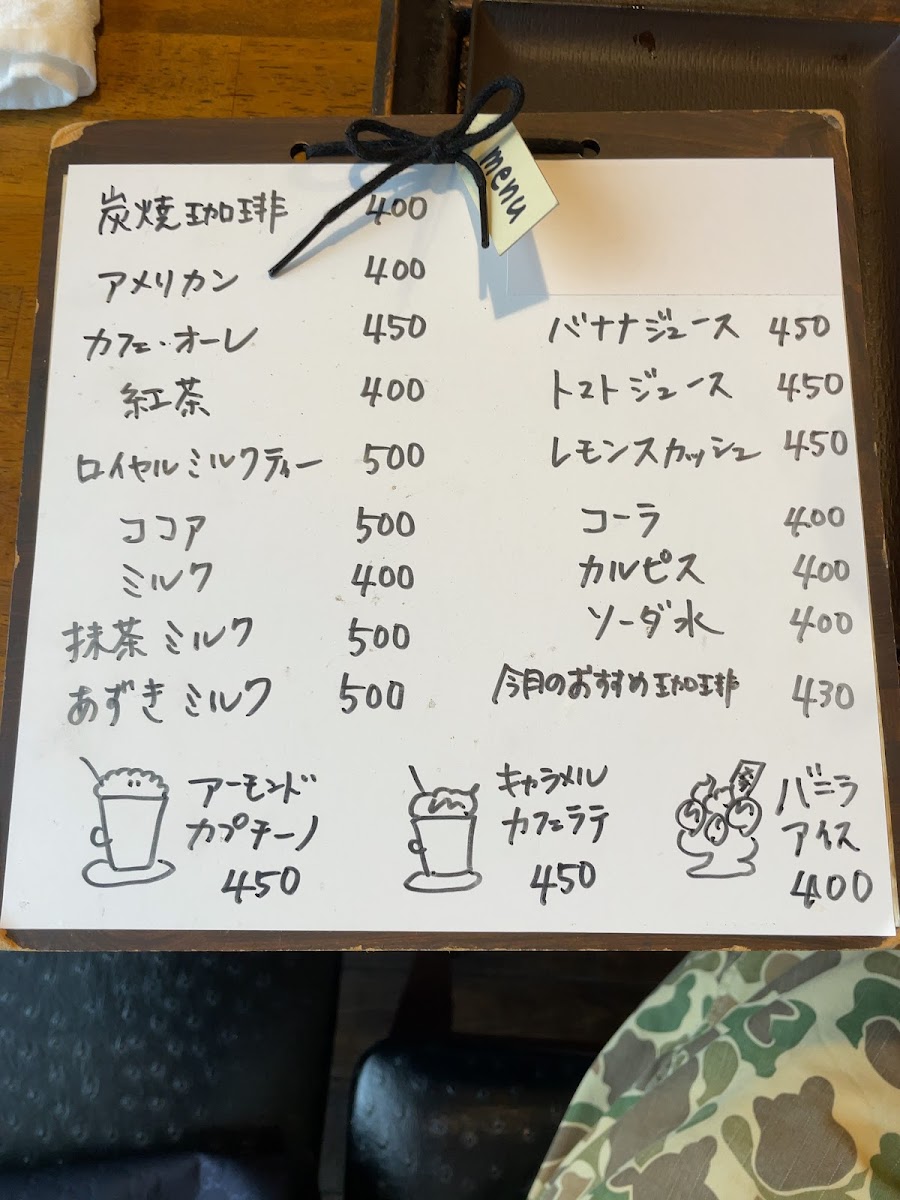 menu
炭焼珈琲 400
アメリカン 400
カフェ・オーレ 450
紅茶 400
ロイヤルミルクティー 500
ココア 500
ミルク 400
抹茶ミルク 500
あずきミルク 500
バナナジュース 450
トマトジュース 450
レモンスカッシュ 450
コーラ 400
カルピス 400
ソーダ水 400
今月のおすすめ珈琲 430
アーモンド
カプチーノ
450
キャラメル
カフェラテ
450
バニラ
アイス
400